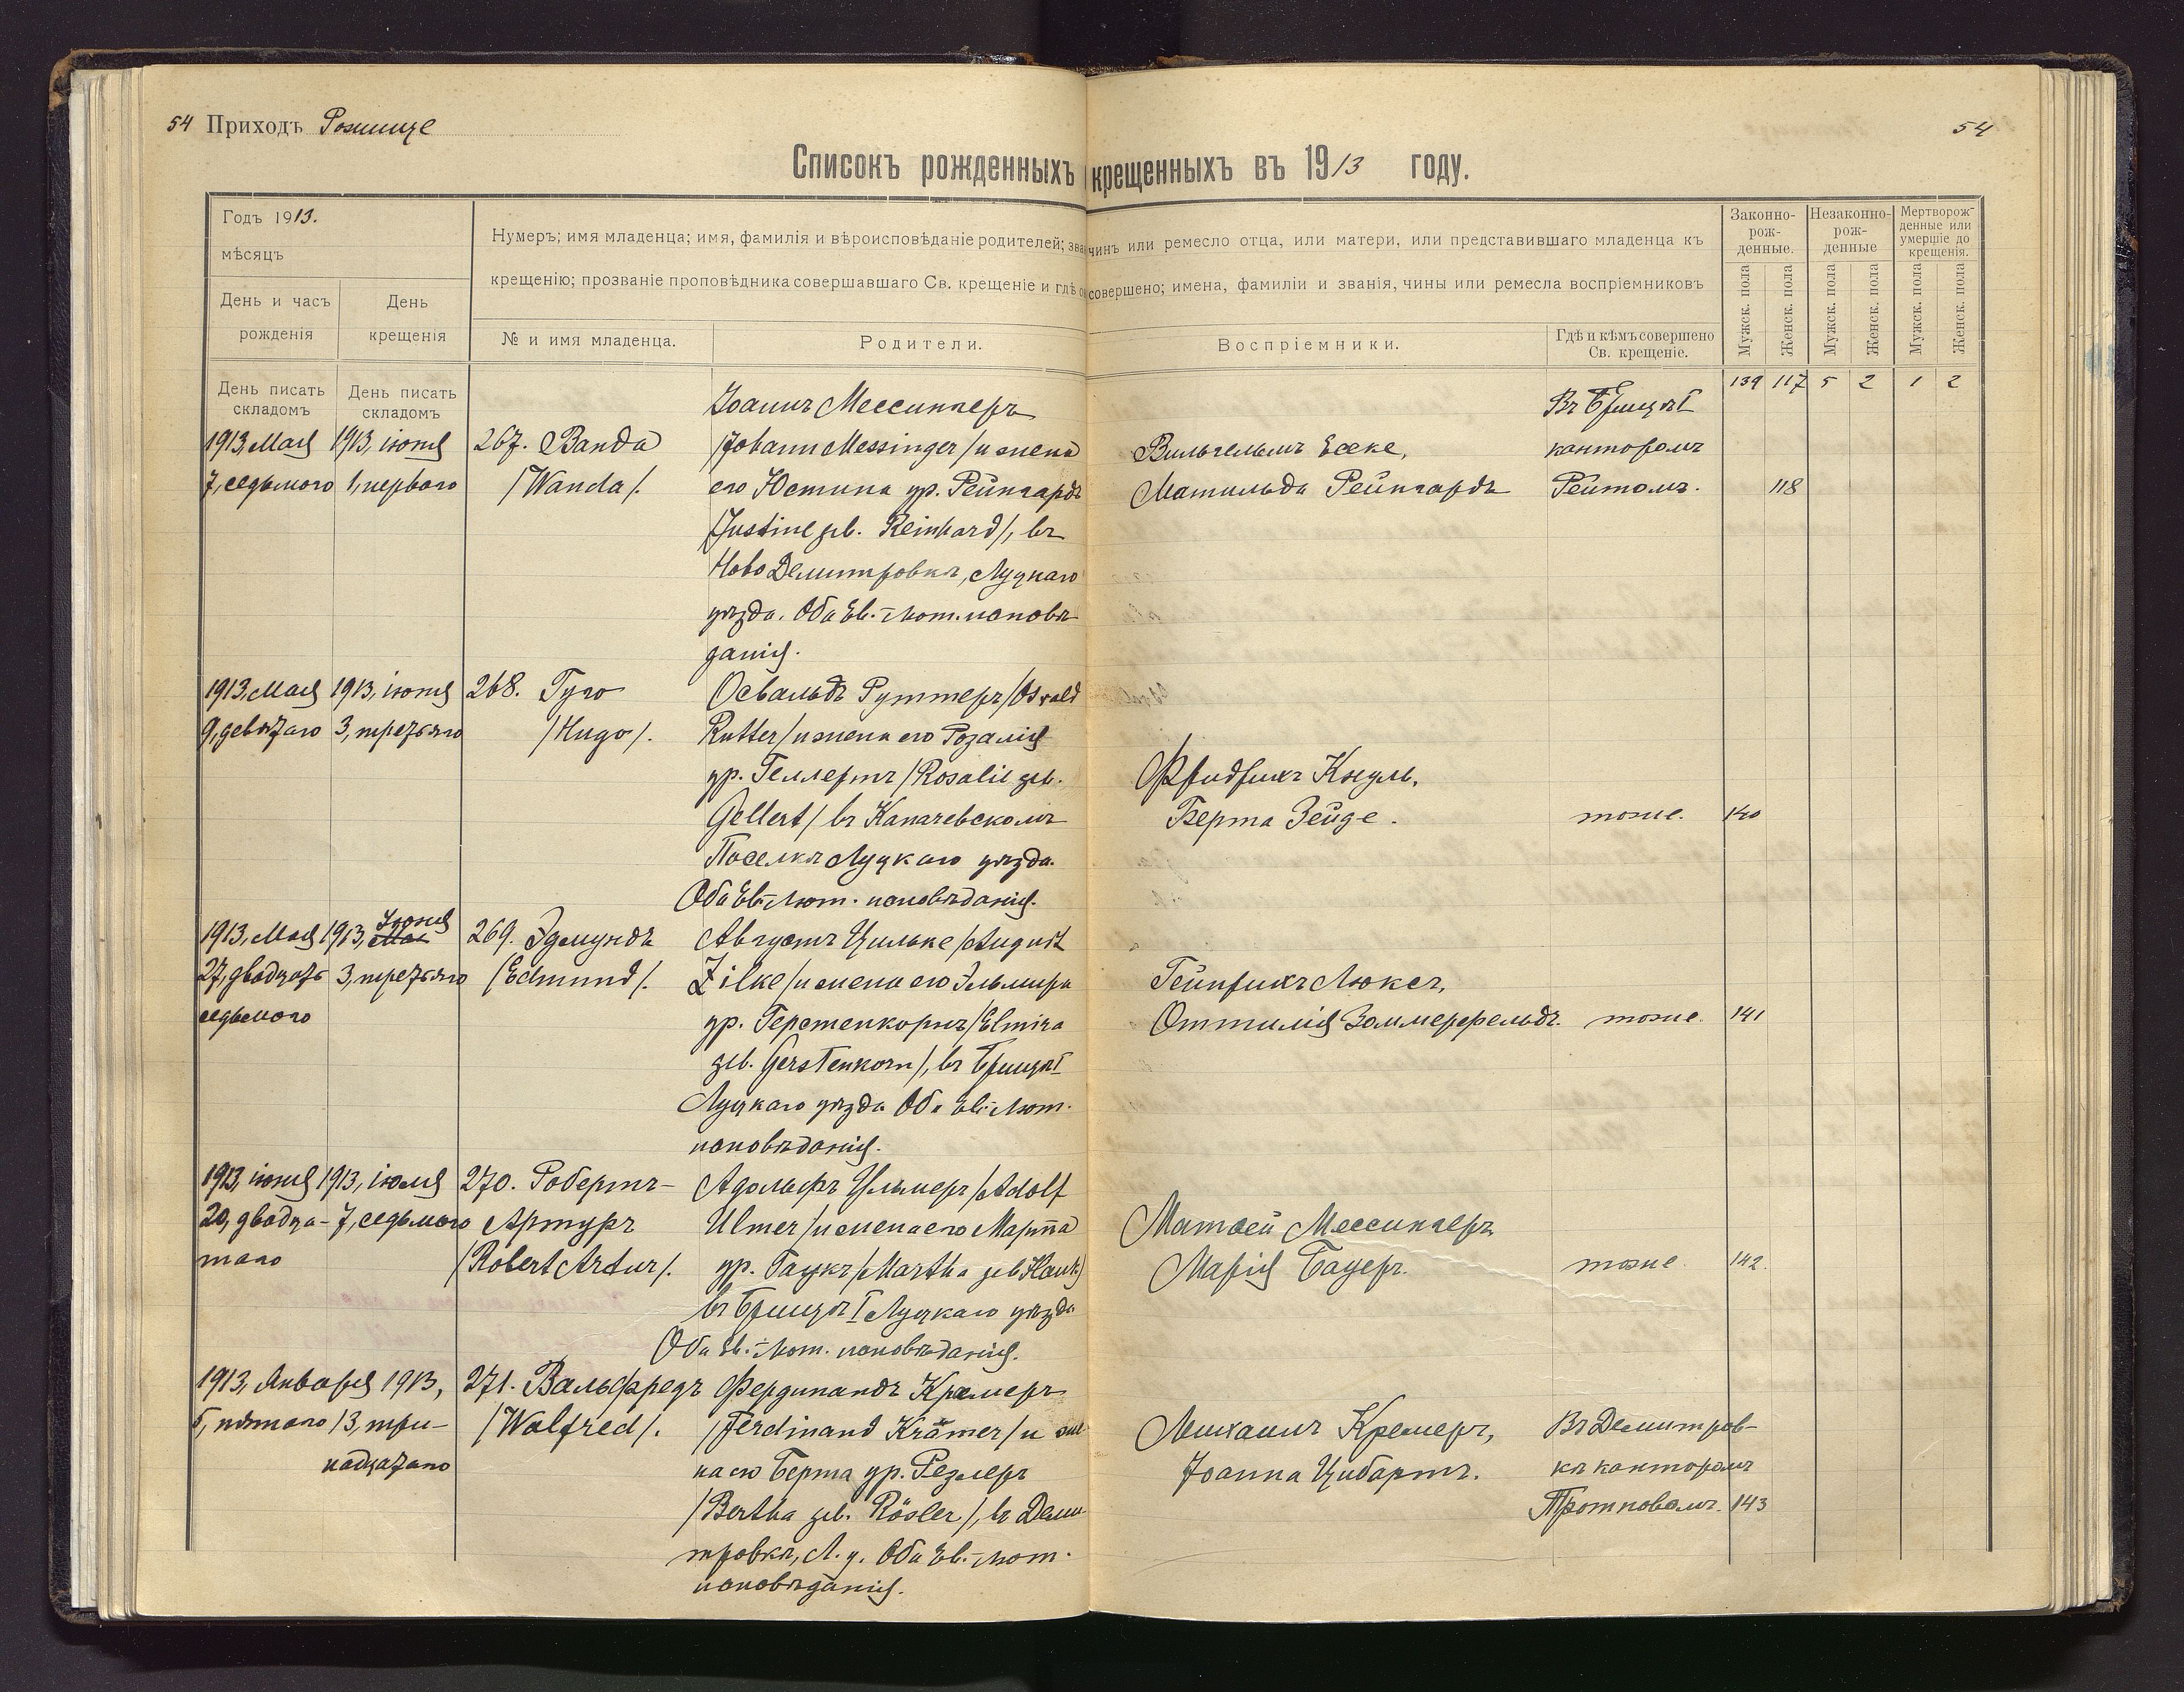 54 Приходъ Рожище
54
Списокъ рожденныхъ крещенныхъ въ 1913 году.
Годъ 1913.
мѣсяцъ
День и часъ рожденія
День крещенія
Нумеръ; имя младенца; имя, фамилія и вѣроисповѣданіе родителей; зва чинъ или ремесло отца, или матери, или представившаго младенца къ
крещенію; прозваніе проповѣдника совершавшаго Св. крещеніе и гдѣ о совершено; имена, фамиліи и званія, чины или ремесла воспріемниковъ
№ и имя младенца.
Родители.
Воспріемники.
Гдѣ и кѣмъ совершено
Св. крещеніе.
Законно-
рож-
денные.
Незаконно-
рож-
денные
Мертворож-
денные или
умершіе до
крещенія.
Мужск. пола
Женск. пола
Мужск. пола
Женск. пола
Мужск. пола
Женск. пола
День писать
складомъ
День писать
складомъ
139 117 5 2 1 2
1913, Мая
7, седьмого
1913, іюня
1, перваго
267. Ванда
/Wanda/.
Іоаннъ Мессингеръ
/Johann Messinger/ и жена
его Юстина ур. Рейнгардъ
/Justine geb. Reinhard/, въ
Ново Демитровкѣ, Луцкаго
уѣзда. Оба Ев.-Лют. исповѣ
данія.
Вильгельмъ Есеке,
Матильда Рейнгардъ
Въ Брищѣ I
канторомъ
Рейтомъ.
118
1913, Мая
9, девятаго
1913, іюня
3, третьяго
268. Гуго
/Hugo/.
Освальдъ Руттеръ /Oswald
Rutter/ и жена его Розалія
ур. Геллертъ /Rosalie geb.
Gellert/ въ Капачевскомъ
Поселкѣ Луцкаго уѣзда.
Оба Ев.-Лют. исповѣданія.
Фридрихъ Кнуль,
Берта Зейде.
тоже.
140
1913, Мая
27, двадцать
седьмого
1913, Мая Іюня
3, третьяго
269. Эдмундъ
/Edmund/.
Августъ Цильке /August
Zilke/ и жена его Эльмира
ур. Герстенкорнъ /Elmira
geb. Gerstenkorn/, въ Брищѣ I
Луцкаго уѣзда Оба Ев.-Лют.
исповѣданія.
Гейнрихъ Люксъ,
Оттилія Зоммерфельдъ.
тоже.
141
1913, іюня
20, двадца-
таго
1913, іюля
7, седьмого
270. Робертъ-
Артуръ
/Robert Artur/.
Адольфъ Ульмеръ /Adolf
Ulmer/ и жена его Марта
ур. Гаукъ /Martha geb Hauk/
въ Брищѣ I Луцкаго уѣзда
Оба Ев.-Лют. исповѣданія.
Матвей Мессингеръ
Марія Бауеръ.
тоже.
142.
1913, Января
5, пятаго
1913,
13, три-
надцатаго
271. Вальфредъ
/Walfred/.
Фердинандъ Кремеръ
/Ferdinand Krämer/ и же
на его Берта ур. Резлеръ
/Bertha geb. Rösler/, въ Деми-
тровкѣ, Л. у. Оба Ев.-Лют.
исповѣданія.
Михаилъ Кремеръ,
Іоанна Цибартъ.
Въ Демитров-
кѣ канторомъ
143